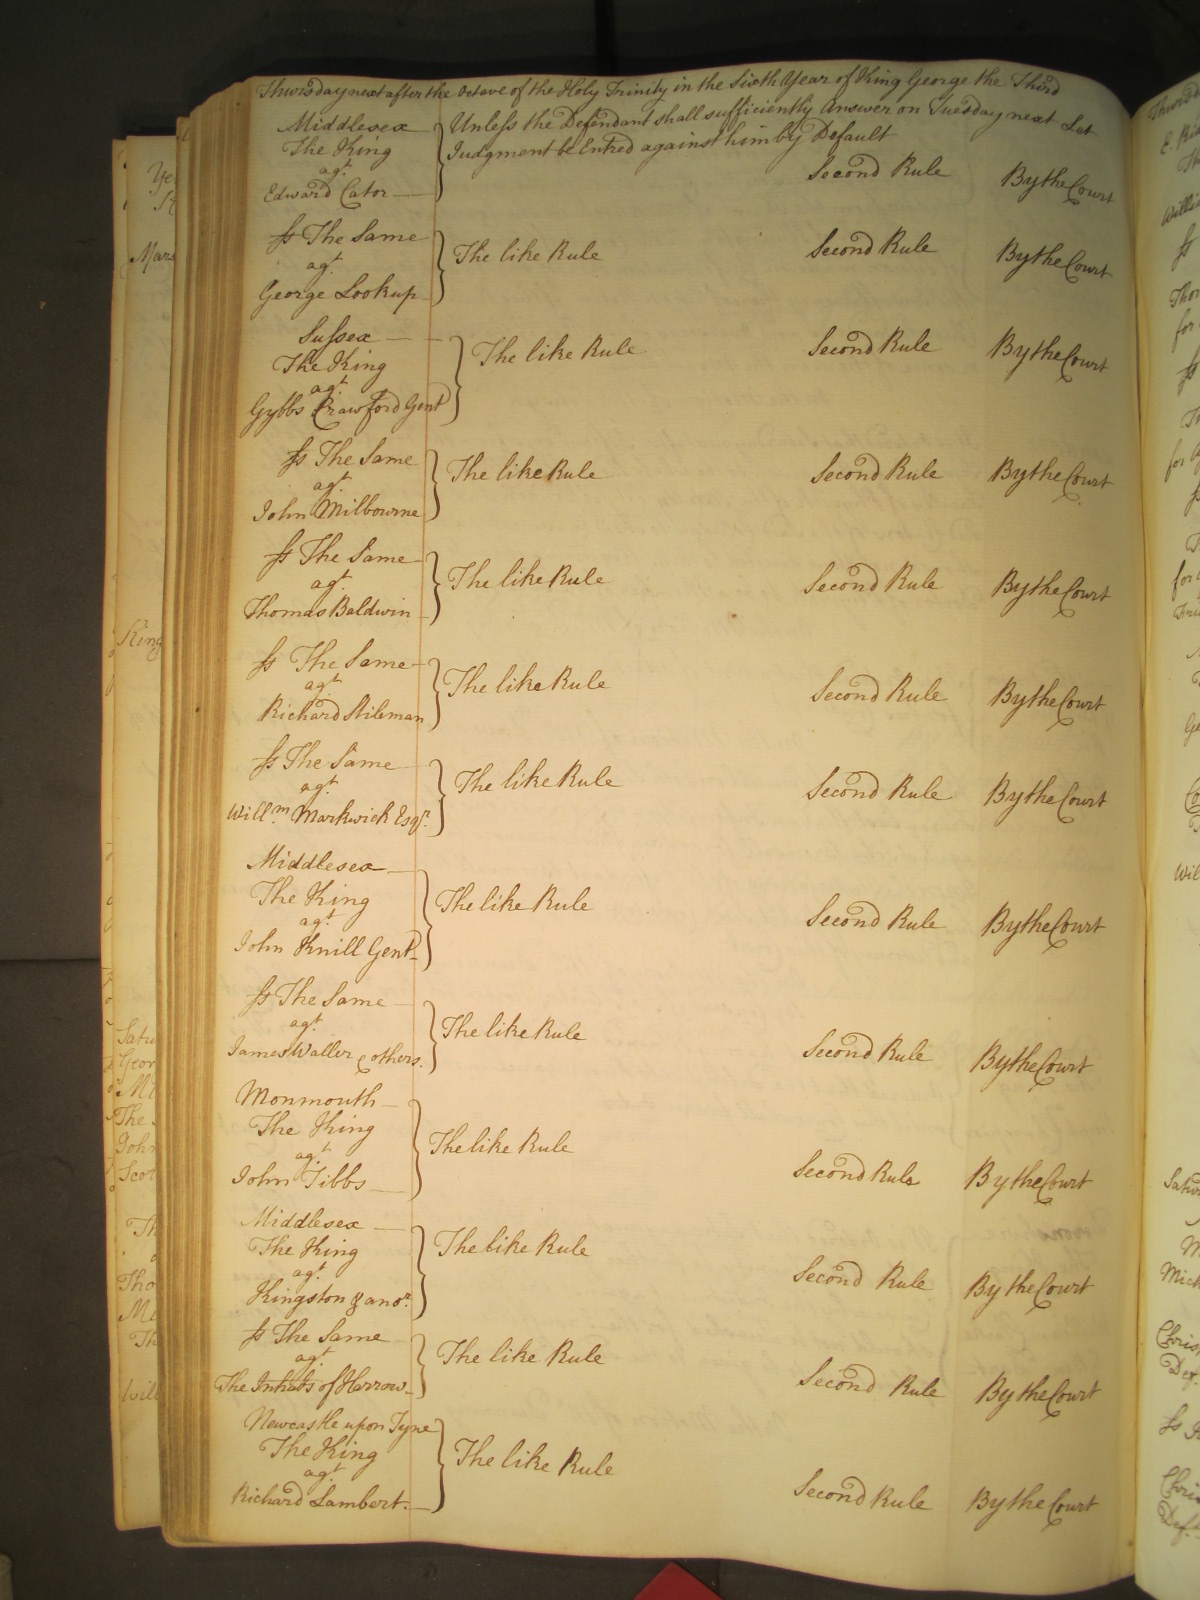 Thursday next after the Octave of the Holy Trinity in the Sixth Year of King George the Third
Middlesex
The King
agt
Edward Cator
Unless the Defendant shall sufficiently Answer on Tuesday next Let
Judgment be Entred against him by Default
Second Rule By the Court
Ss The Same
agt
George Lookup
The like Rule Second Rule By the Court
Sussex
The King
agt
Gybbs Crawford Gent
The like Rule Second Rule By the Court
Ss The Same
agt
John Milbourne
The like Rule Second Rule By the Court
Ss The Same
agt
Thomas Baldwin
The like Rule Second Rule By the Court
Ss The Same
agt
Richard Stileman
The like Rule Second Rule By the Court
Ss The Same
agt
Willm Markwick Esqr
The like Rule Second Rule By the Court
Middlesex
The King
agt
John Knill Gent
The like Rule Second Rule By the Court
Ss The Same
agt
James Waller & others
The like Rule Second Rule By the Court
Monmouth
The King
agt
John Tibbs
The like Rule Second Rule By the Court
Middlesex
The King
agt
Kingston & anor
The like Rule Second Rule By the Court
Ss The Same
agt
The Inhabs of Harrow
The like Rule Second Rule By the Court
Newcastle upon Tyne
The King
agt
Richard Lambert
The like Rule Second Rule By the Court